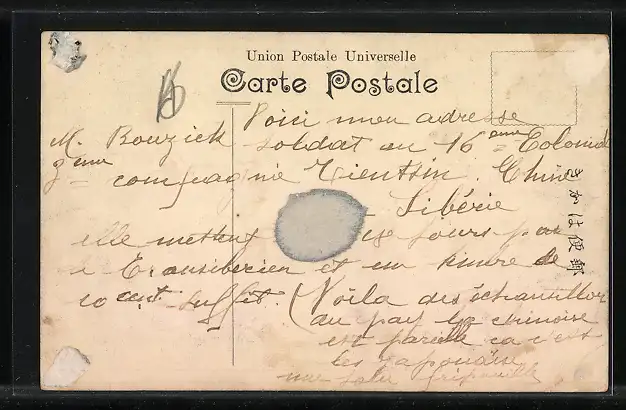 Union Postale Universelle
Carte Postale
Voici mon adresse
M. Bouzick soldat au 16 eme Colonial
3 eme compagnie Tientsin. Chine
Sibérie
elle mettent jours par
Transiberien et un timbre de
10 cent suffit. (Voila des échantillon
au pay la chinoise
est pareille ca c'est
les japonaise
きかは便郵